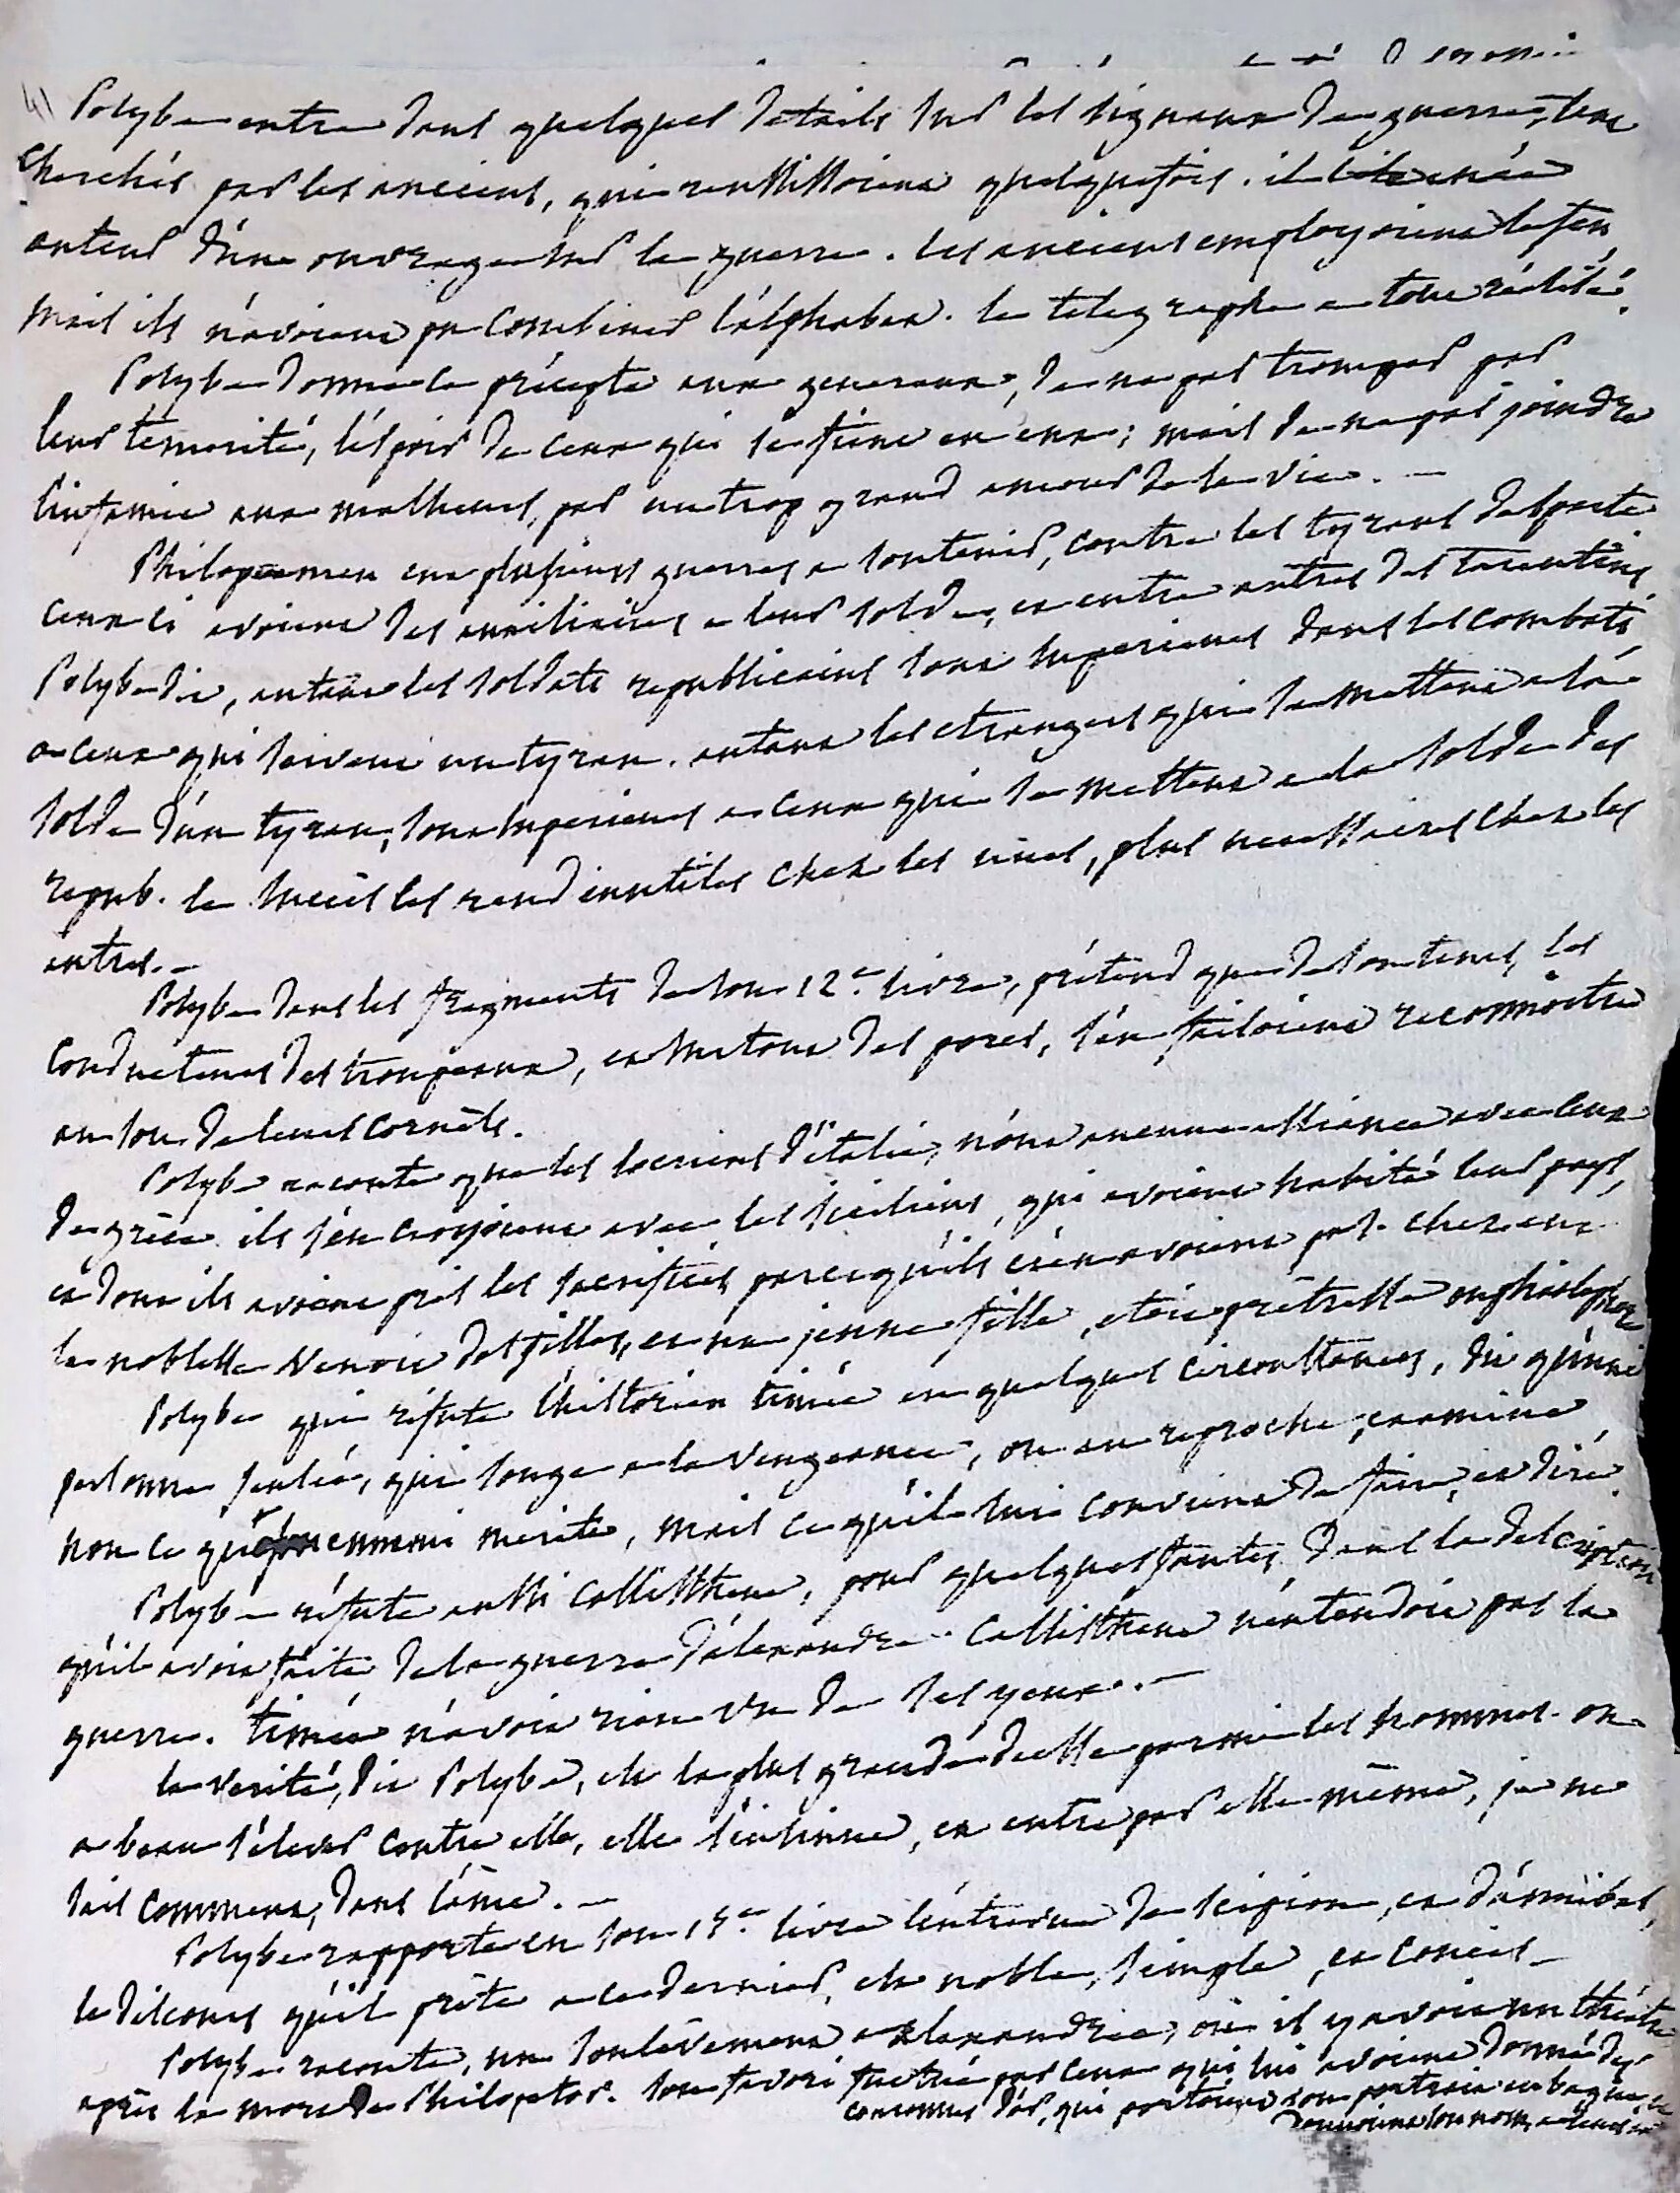 Polybe entre dans quelques details sur les signaux de guerre, tant
cherchés par les anciens, qui reussissoient quelquefois. il cite enée
auteur d'un ouvrage sur la guerre. les anciens employoient le feu,
mais ils n'avoient pu combiner l'alphabet. le telegraphe a tout réalisé.
Polybe donne ce précepte aux generaux, de ne pas tromper par
leur temerité, l'espoir de ceux qui se fient en eux; mais de ne pas joindre
l'infamie aux malheurs, par un trop grand amour de la vie. —
Philopoemen eut plusieurs guerres a soutenir, contre les tyrans de sparte
ceux ci avoient des auxiliaires a leur solde, et entre autres des tarentins.
Polybe dit, autant les soldats republicains sont superieurs dans les combats,
a ceux qui servent un tyran. autant les etrangers qui se mettent a la
solde d'un tyran, sont superieurs a ceux qui se mettent a la solde des
repub. le succès les rend inutiles chez les unes, plus necessaires chez les
autres. —
Polybe dans les fragments de son 12e. livre, prétend que de son tems, les
conducteurs des troupeaux, et surtout des porcs, s'en faisoient reconnoitre
au son de leurs cornets.
Polybe raconte que les locriens d'italie, n'ont aucune alliance avec ceux
de grèce. ils s'en croyoient avec les siciliens, qui avoient habité leur pays,
et dont ils avoient pris les sacrifices, parce qu'ils n'en avoient pas. chez eux
la noblesse venoit des filles, et une jeune fille, etoit prêtresse
Polybe qui réfute l'historien timée en quelques circonstances, dit qu'une
personne sensée, qui songe a la vengeance, ou au reproche, examine
non ce que son ennemi merite, mais ce qu'il lui convient de faire, et dire.
Polybe réfute aussi Callisthene, pour quelques fautes, dans la description
qu'il avoit faite, de la guerre d'alexandre. Callisthene n'entendoit pas la
guerre. timée n'avoit rien vu de ses yeux. —
la verité, dit Polybe, est la plus grande déesse parmi les hommes. on
a beau s'elever contre elle, elle s'insinue, et entre par elle même, je ne
sais comment, dans l'âme. —
Polybe rapporte en son 15e. livre l'entrevue de scipion, et d'annibal,
le discours qu'il prête a ce dernier, est noble, simple, et concis —
Polybe raconte, un soulèvement a alexandrie, où il y avoit un théatre
après la mort de Philopator. son favori fut tué par ceux qui lui avoient donné des
couronnes d'or, qui portoient son portrait en bague, et
donnoient son nom, a leurs